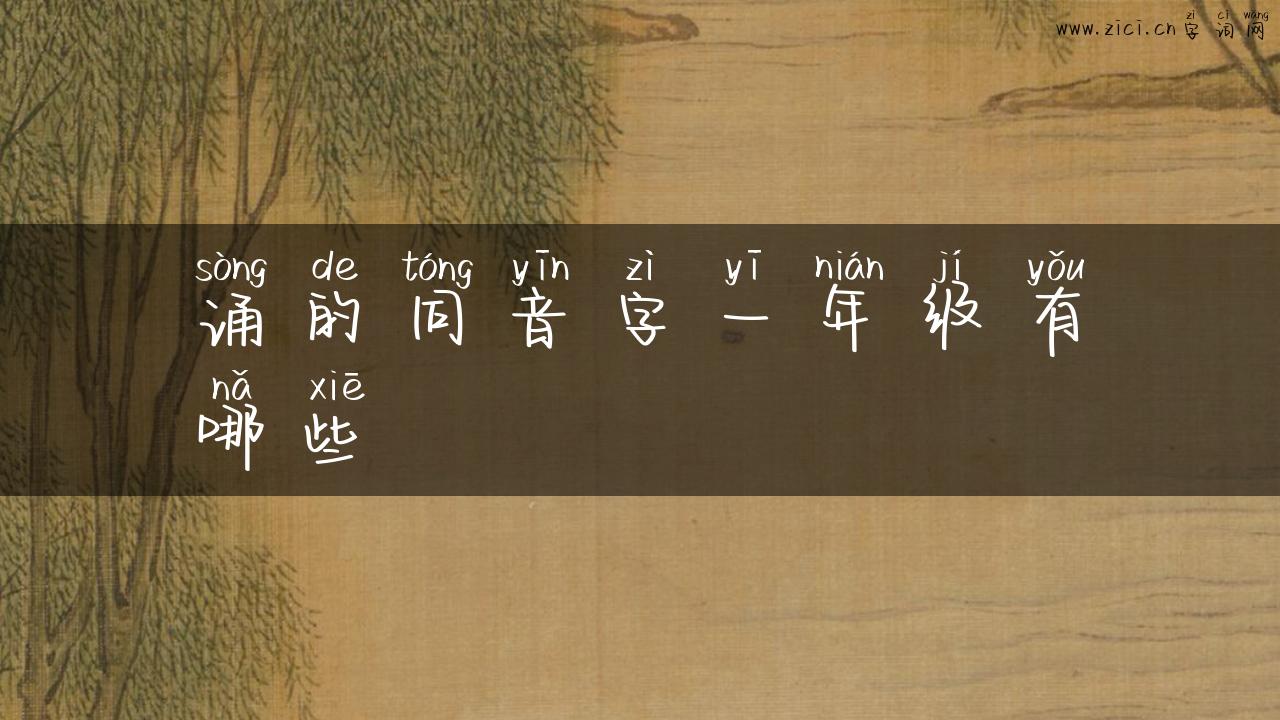 zì cí wǎng
www.zici.cn字词网
sòng de tóng yīn zì yī nián jí yǒu
诵的同音字一年级有
nǎ xiē
哪些